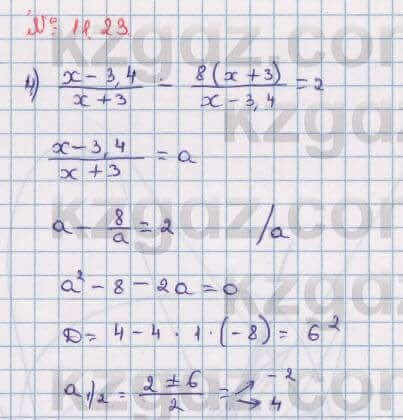 № 11.23
4) (x - 3,4)/(x + 3) - 8(x + 3)/(x - 3,4) = 2
(x - 3,4)/(x + 3) = a
a - 8/a = 2 /a
a² - 8 - 2a = 0
D = 4 - 4 · 1 · (-8) = 6²
a₁,₂ = (2 ± 6)/2 = -2
4
kzgdz.com